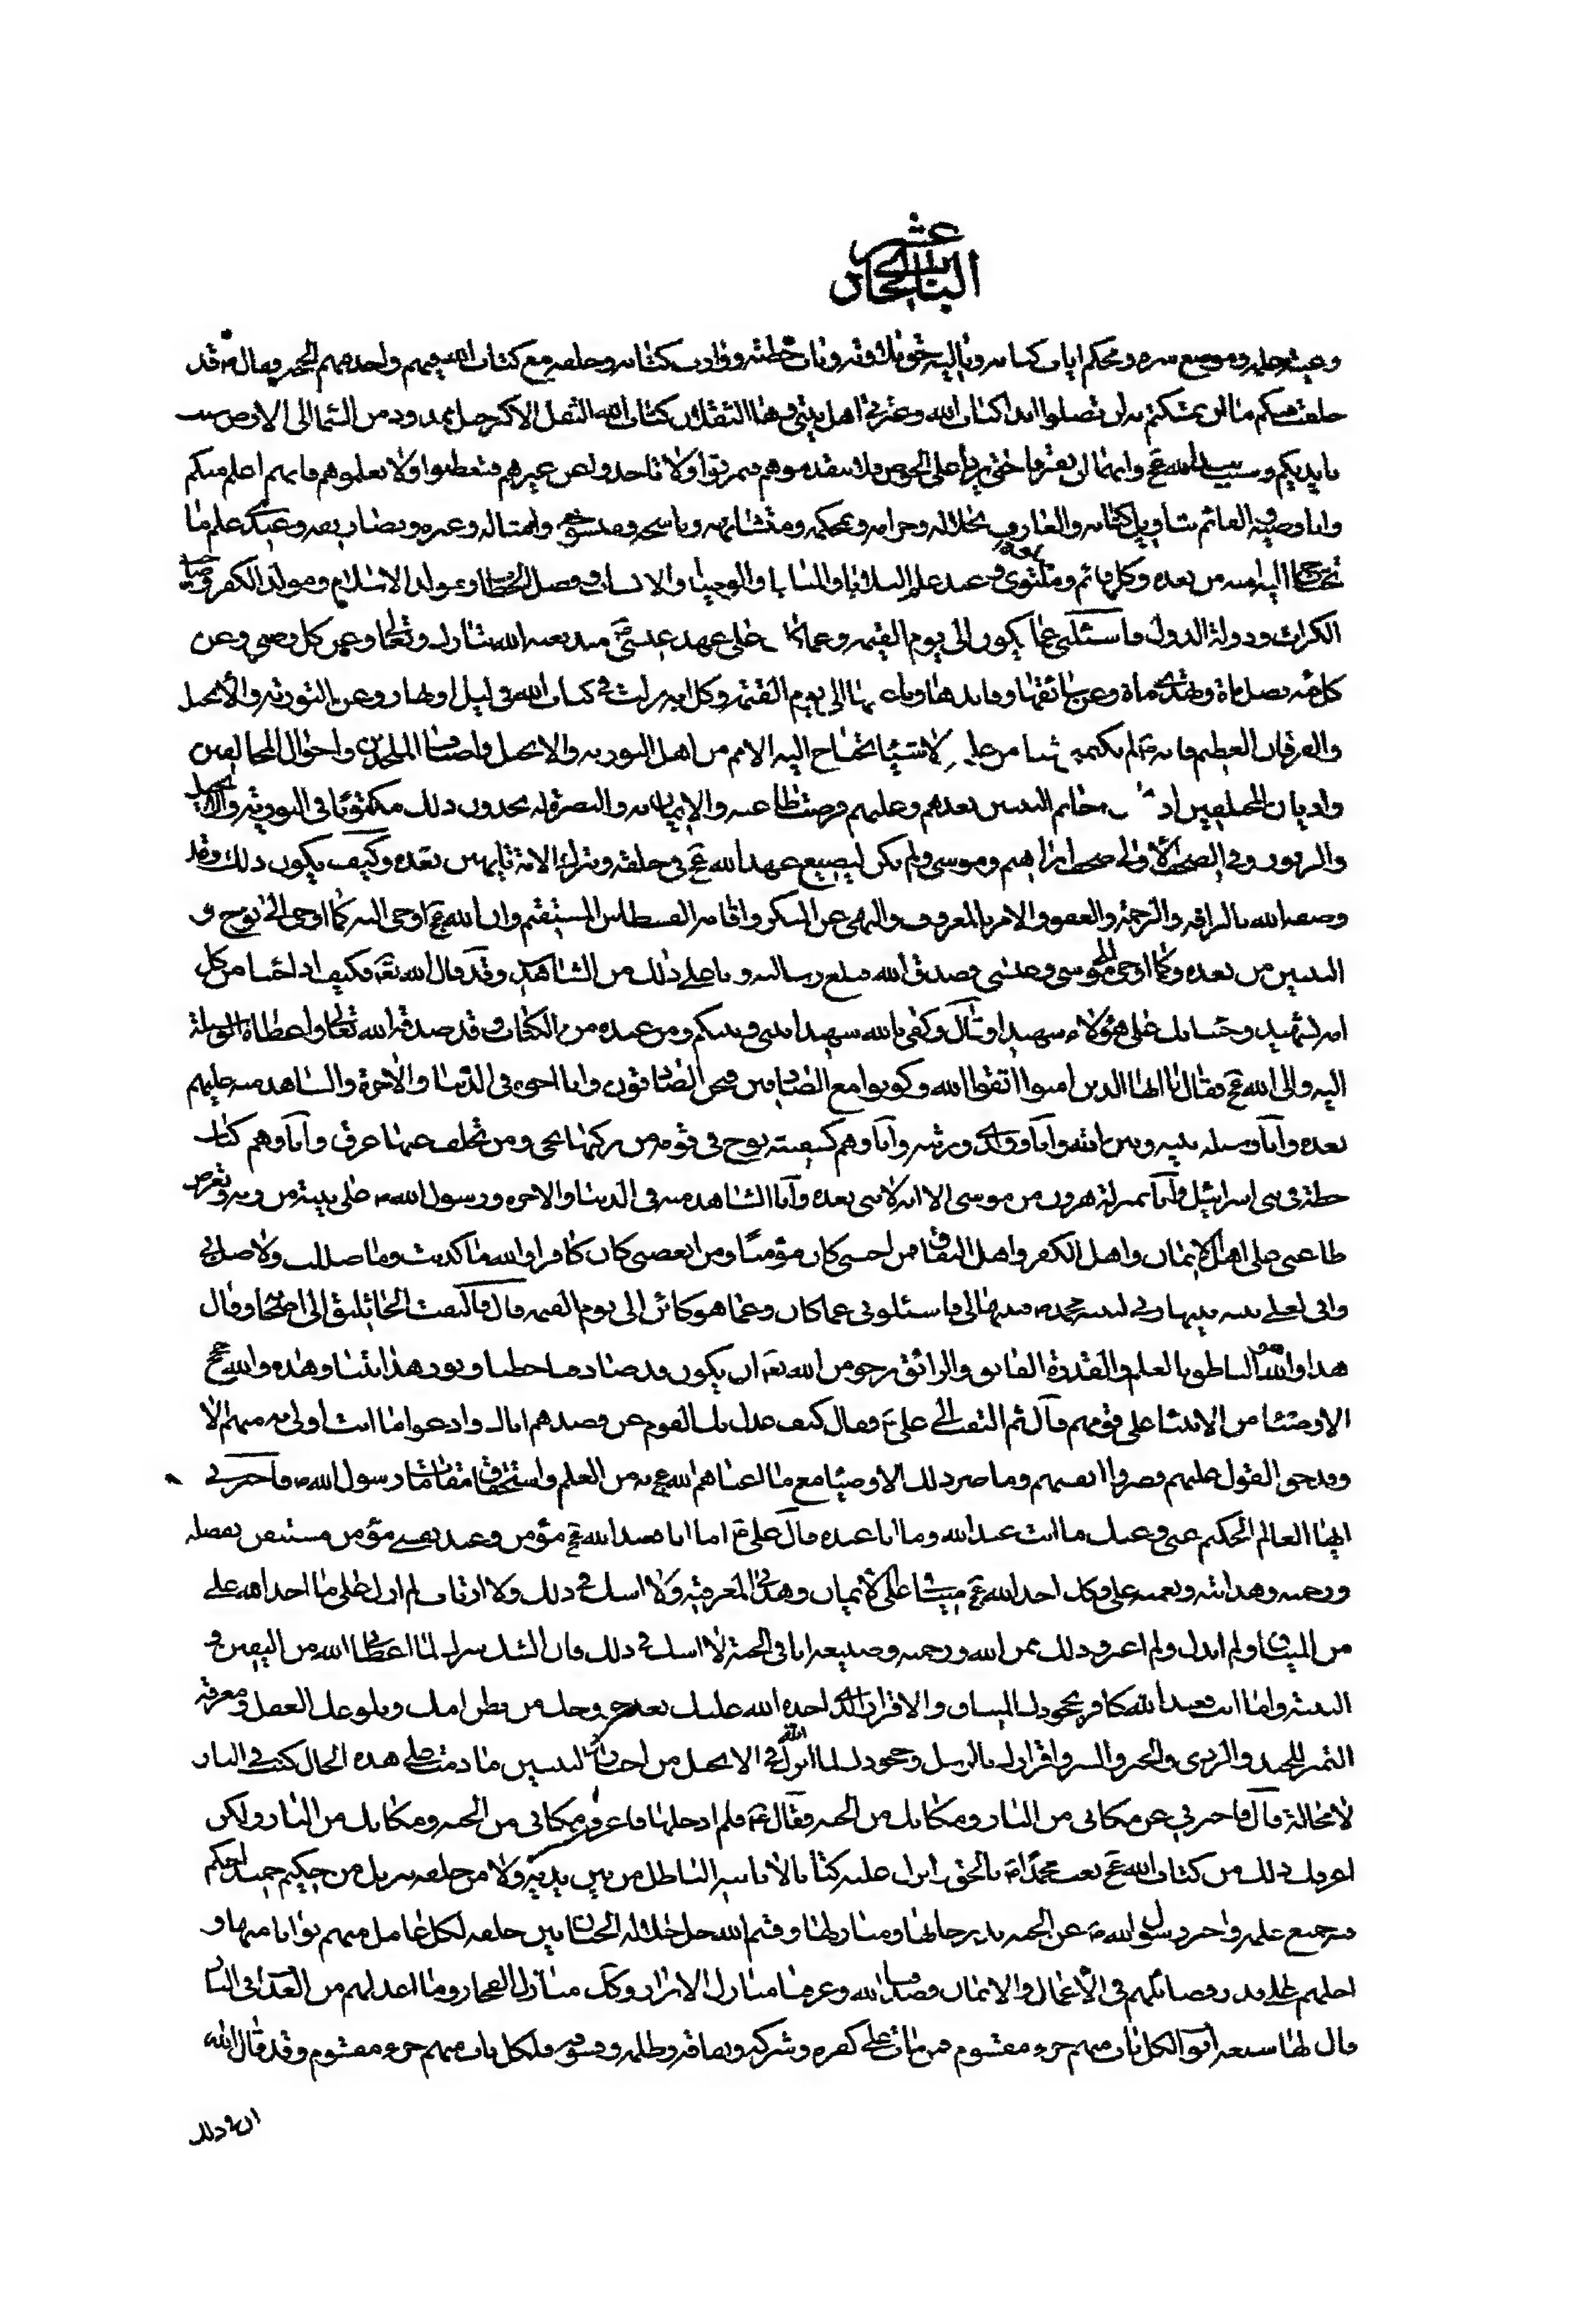 الباب الحادي عشر
وعيبة علمه وموضع سره ومحكم ايات كتابه وتاليه حق تلاوته وباب حطته ووارث كتابه وخلفه مع كتاب الله فيهم واحد منهم الحجة وقال ص قد
خلفت فيكم ما ان تمسكتم به لن تضلوا ابدا كتاب الله وعترتي اهل بيتي وهما الثقلان كتاب الله الثقل الاكبر حبل ممدود من السما الى الارض سبب
بايديكم وسبب بيد الله عج وانهما لن يفترقا حتى يردا على الحوض فلا تتقدموهم فتمرقوا ولا تاخذوا عن غيرهم فتعطبوا ولا تعلموهم فانهم اعلم منكم
وانا وصيه القائم بتاويل كتابه والعارف بحلاله وحرامه ومحكمه ومتشابهه وناسخه ومنسوخه وامثاله وعبره وتصاريفه وعندي علم ما
تحتاج اليه امته من بعده وكل قائم وملتوي وعندي علم البلايا والمنايا والوصايا والانساب وفصل الخطاب ومولد الاسلام ومولد الكفر وصاحب
الكرات ودولة الدول فاسئلني عما يكون الى يوم القيمة وعما كان على عهد عيسى منذ بعثه الله تبارك وتعالى وعن كل وصي وعن
كل فئة تضل ماة وتهدي ماة وعن سائقها وقائدها وناعقها الى يوم القيمة وكل اية نزلت في كتاب الله في ليل او نهار وعن التورية والانجيل
والفرقان العظيم فانه ص لم يكتمني شيئا من علمه ولا شيئا تحتاج اليه الامم من اهل التورية والانجيل واصناف الملحدين واحوال المخالفين
واديان المختلفين اذ كان خاتم النبيين بعدهم وعليهم فرضت طاعته والايمان به والنصرة له تجدون ذلك مكتوبا في التورية والانجيل
والزبور وفي الصحف الاولى صحف ابراهيم وموسى ولم يكن ليضيع عهد الله عج في خلقه ويترك الامة تايهين بعده وكيف يكون ذلك وقد
وصفه الله بالرافة والرحمة والعفو والامر بالمعروف والنهي عن المنكر واقامة القسطاس المستقيم وان الله عج اوحى اليه كما اوحى الى نوح و
النبيين من بعده وكما اوحى الى موسى وعيسى فصدق الله وبلغ رسالته وانا على ذلك من الشاهدين وقد قال الله تعه فكيف اذا جئنا من كل
امة بشهيد وجئنا بك على هؤلاء شهيدا وقال وكفى بالله شهيدا بيني وبينكم ومن عنده من الكتاب وقد صدقه الله تعالى واعطاه الوسيلة
اليه والى الله عج فقال يا ايها الذين امنوا اتقوا الله وكونوا مع الصادقين فنحن الصادقون وانا اخوه في الدنيا والاخرة والشاهد منه عليهم
بعده وانا وسيلته بينه وبين امته وانا وولدي ورثته وانا وهم كسفينة نوح في قومه من ركبها نجى ومن تخلف عنها غرق وانا وهم كباب
حطة في بني اسرائيل وانا بمنزلة هرون من موسى الا انه لا نبي بعده وانا الشاهد منه في الدنيا والاخرة ورسول الله ص على بينة من ربه وتفرض
طاعتي على اهل الايمان واهل الكفر واهل النفاق فمن احبني كان مؤمنا ومن ابغضني كان كافرا والله ما كذبت وما ضللت ولا ضل بي
واني لعلى بينة بينها ربي لنبيه محمد ص فبينها لي فاسئلوني عما كان وعما هو كائن الى يوم القيمة قال فالتفت الجاثليق الى اصحابه وقال
هذا والله هو الناطق بالعلم والقدرة الفاتق والراتق نرجو من الله تعه ان يكون قد صادفنا حظنا ونور هدايتنا وهذه والله حجج
الاوصيا من الانبيا على قومهم قال ثم التفت الى علي ع وقال كيف عدل بك القوم عن قصدهم اياك وادعوا ما انت اولى به منهم الا
وقد حق القول عليهم فضروا انفسهم وما ضر ذلك الاوصيا مع ما اغناهم الله عج به من العلم واستحقاق مقامات رسول الله ص فاخبرني
ايها العالم الحكيم عني وعنك ما انت عند الله وما انا عنده قال علي ع اما انا فعند الله عج مؤمن وعند نفسي مؤمن مستيقن بفضله
ورحمته وهدايته ونعمته علي وكذلك اخذ الله عج ميثاقي على الايمان وهداني لمعرفته ولا اشك في ذلك ولا ارتاب لم ازل على ما اخذ الله علي
من الميثاق ولم ابدل ولم اغير وذلك بمن الله ورحمته وصنيعه انا في الجنة لا اشك في ذلك فان الشك شرك لما اعطاني الله من اليقين و
البينة واما انت فعند الله كافر بجحودك الميثاق والاقرار الذي اخذه الله عليك بعد خروجك من بطن امك وبلوغك العقل ومعرفة
التميز للجيد والردي والخير والشر واقرارك بالرسل وجحودك لما انزل الله في الانجيل من اخبار النبيين ما دمت على هذه الحال كنت في النار
لا محالة قال فاخبرني عن مكاني من النار ومكانك من الجنة فقال ع فلم ادخلها فاعرف مكاني من الجنة ومكانك من النار ولكن
اعرفك ذلك من كتاب الله عج بعث محمدا ص بالحق انزل عليه كتابا لا ياتيه الباطل من بين يديه ولا من خلفه تنزيل من حكيم حميد احكم
فيه جميع علمه واخبر رسول الله ص عن الجنة بدرجاتها ومنازلها وقسم الله جل جلاله الجنان بين خلقه لكل عامل منهم ثوابا منها و
احلهم على قدر فضائلهم في الاعمال والايمان فصدقنا الله وعرفنا منازل الابرار وكذلك منازل الفجار وما اعد لهم من العذاب في النار
وقال لها سبعة ابواب لكل باب منهم جزء مقسوم فمن مات على كفره وشركه ونفاقه وظلمه وفسوقه فلكل باب منهم جزء مقسوم وقد قال الله
ان في ذلك